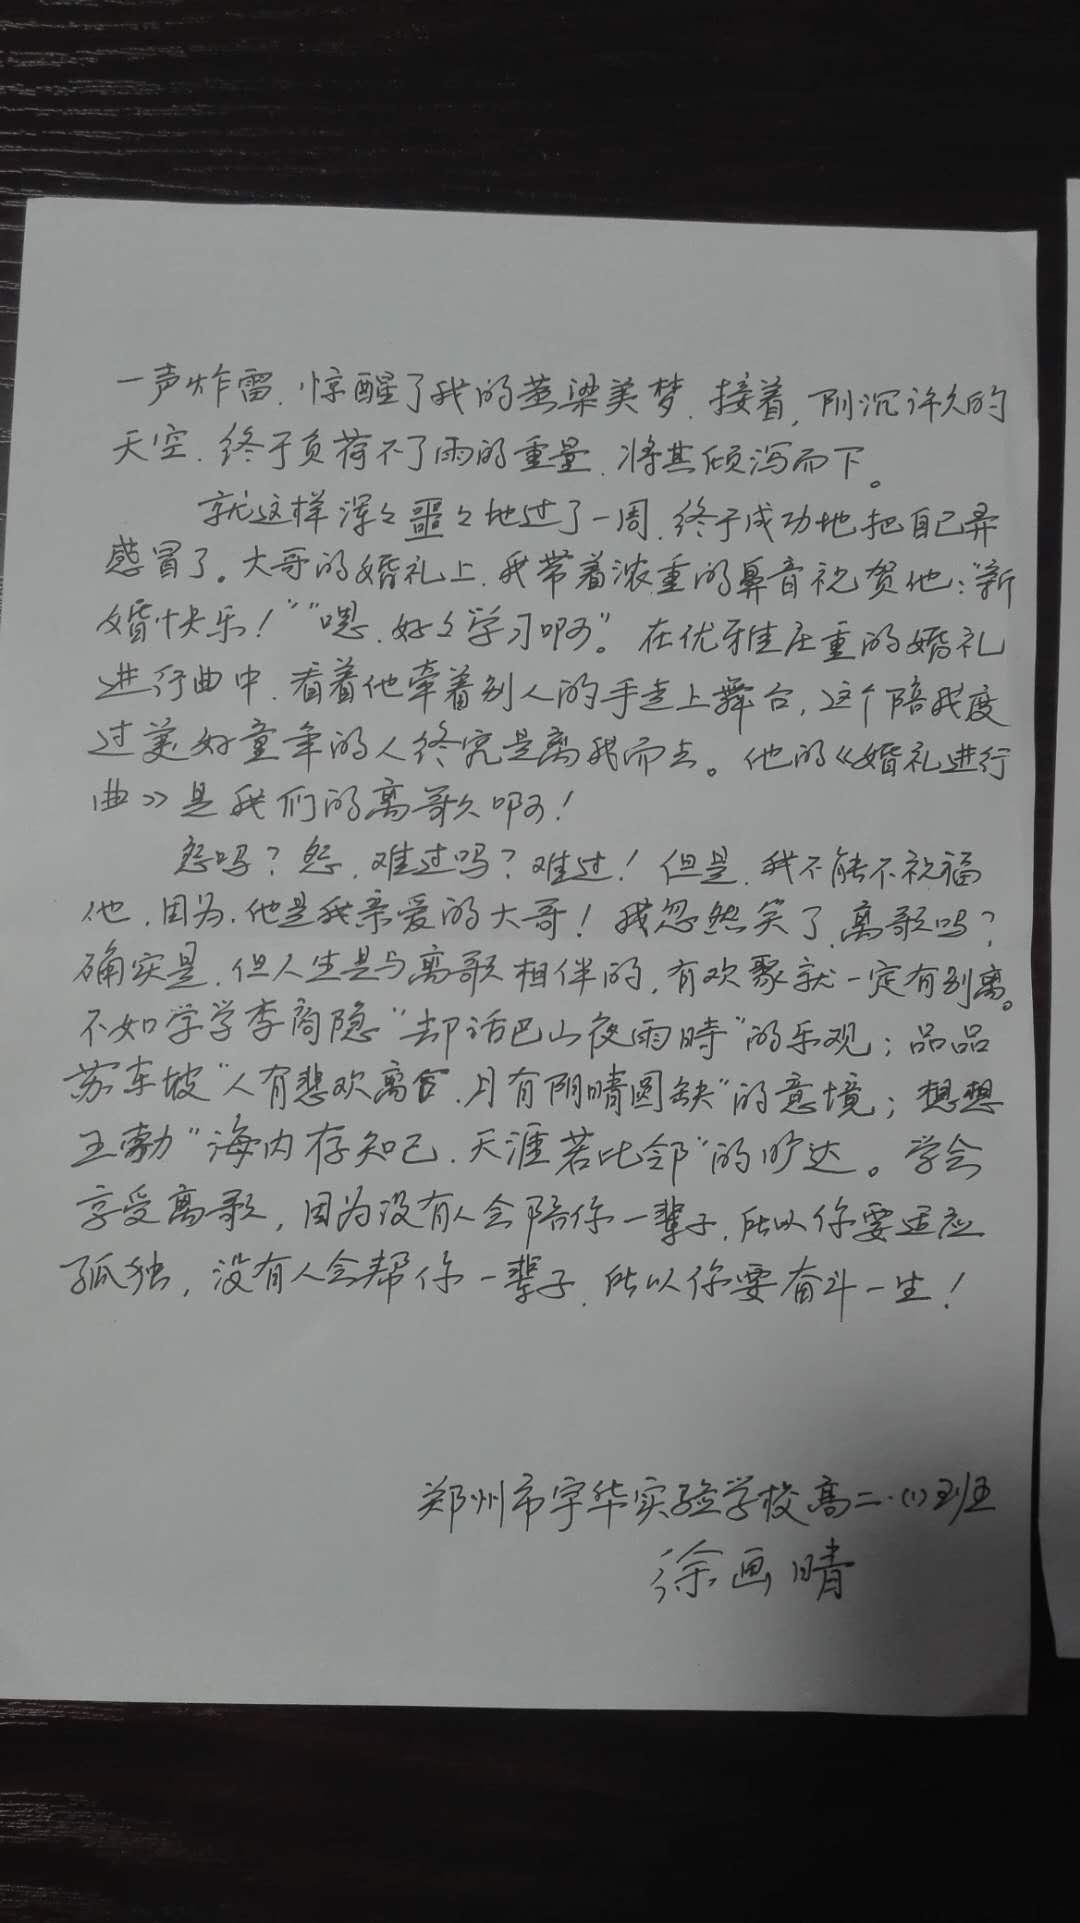 一声炸雷，惊醒了我的黄梁美梦，接着，阴沉许久的
天空，终于负荷不了雨的重量，将其倾泻而下。
就这样浑々噩々地过了一周，终于成功地把自己弄
感冒了。大哥的婚礼上，我带着浓重的鼻音祝贺他：“新
婚快乐！”“嗯，好々学习啊”。在优雅庄重的婚礼
进行曲中，看着他牵着别人的手走上舞台，这个陪我度
过美好童年的人终究是离我而去。他的《婚礼进行
曲》是我们的离歌啊！
怨吗？怨，难过吗？难过！但是，我不能不祝福
他，因为，他是我亲爱的大哥！我忽然笑了，离歌吗？
确实是，但人生是与离歌相伴的，有欢聚就一定有别离。
不如学学李商隐“却话巴山夜雨時”的乐观；品品
苏东坡“人有悲欢离合，月有阴晴圆缺”的意境；想想
王勃“海内存知己，天涯若比邻”的旷达。学会
享受离歌，因为没有人会陪你一辈子，所以你要适应
孤独，没有人会帮你一辈子，所以你要奋斗一生！
郑州市宇华实验学校高二·(1)班
徐画晴